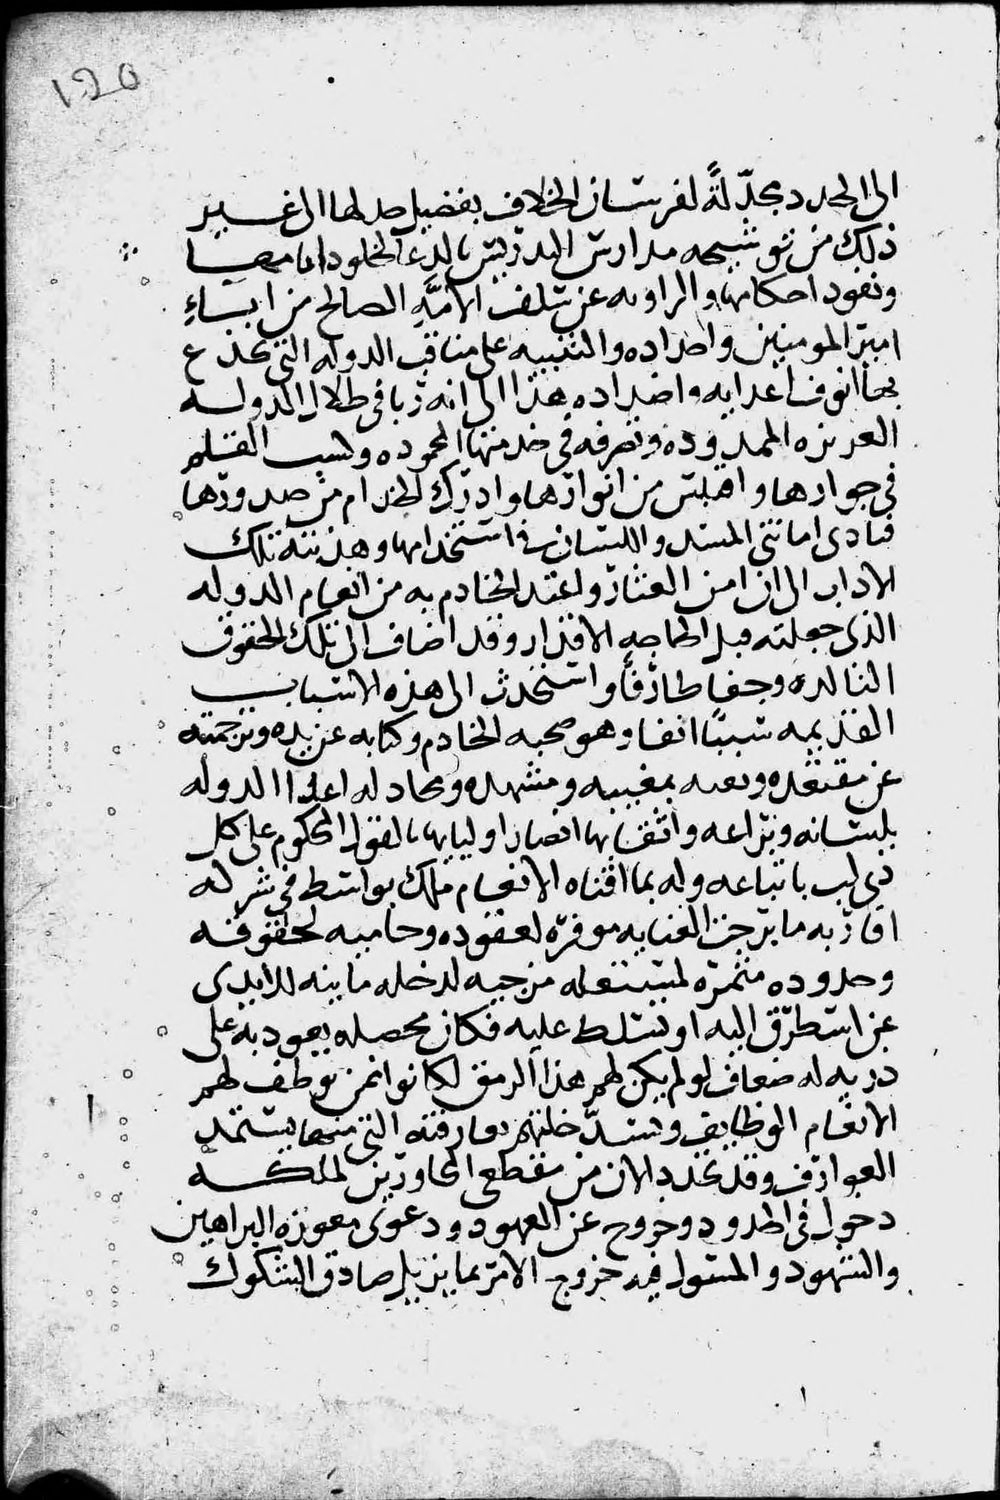 ١٢٥
الى الجدد مجدّلةً لفرسان الخلاف بفضيل صدلها الى غير
ذلك من توشيحه مدارس التدريس بالدعا لخلود ايامها
ونفود احكامها والراويه عن سلف الأمّة الصالح من ابناءِ
امير المومنين واجداده والتنبيه على مناقب الدوله التى تجدع
بها انوف اعدايه واضداده هذا الى انه ربا فى ظلال الدوله
العزيزه الممدوده وتصرفه فى خدمتها المحموده وكسب القلم
فى جوارها واقتبس من انوارها وادرك الخدام من صدورها
فنادى امانتى المسد واللسان فى استخدامها وهذبته تلك
الاداب الى ان امن العثار واعتد الخادم به من انعام الدوله
الذى جعلته قبل الحاجه الاقدار وقد اضاف الى تلك الحقوق
التالده وحقا طارفًا واستحدث الى هذه الاسباب
القديمه سببًا انفا وهو صحبه الخادم وكتابه عن يده وترجمته
عن معتقده ونعته بمغيبه ومشهده ومجادله اعدا الدوله
بلسانه ويراعه واثقا بها انصار اوليايها بالقول المحكوم على كل
ذى لب باتباعه وله بما اقناه الانعام ملك بواسط فى شركه
اقاربه ما برحت العنايه موفرة لعقوده وحاميه لحقوقه
وحدوده مثمرة لمستغله من جيه لدخله مانبه للايدى
عن استطرق اليه او تسلط عليه فكان محصله يعود به على
ذريه له ضعاف لو لم يكن لهم هذا الرمق لكانوا ممن توظف لهم
الانعام الوظايف وتسدّ خلتهم بعارفته التى منها يستمد
العوارف وقد تجدد الان من مقطعى المجاورين لملكه
دخول فى الحدود وخروج عن العهود ودعوى معوزه البراهين
والشهود والمسول فيه خروج الامر بما يزيل صادق الشكوك